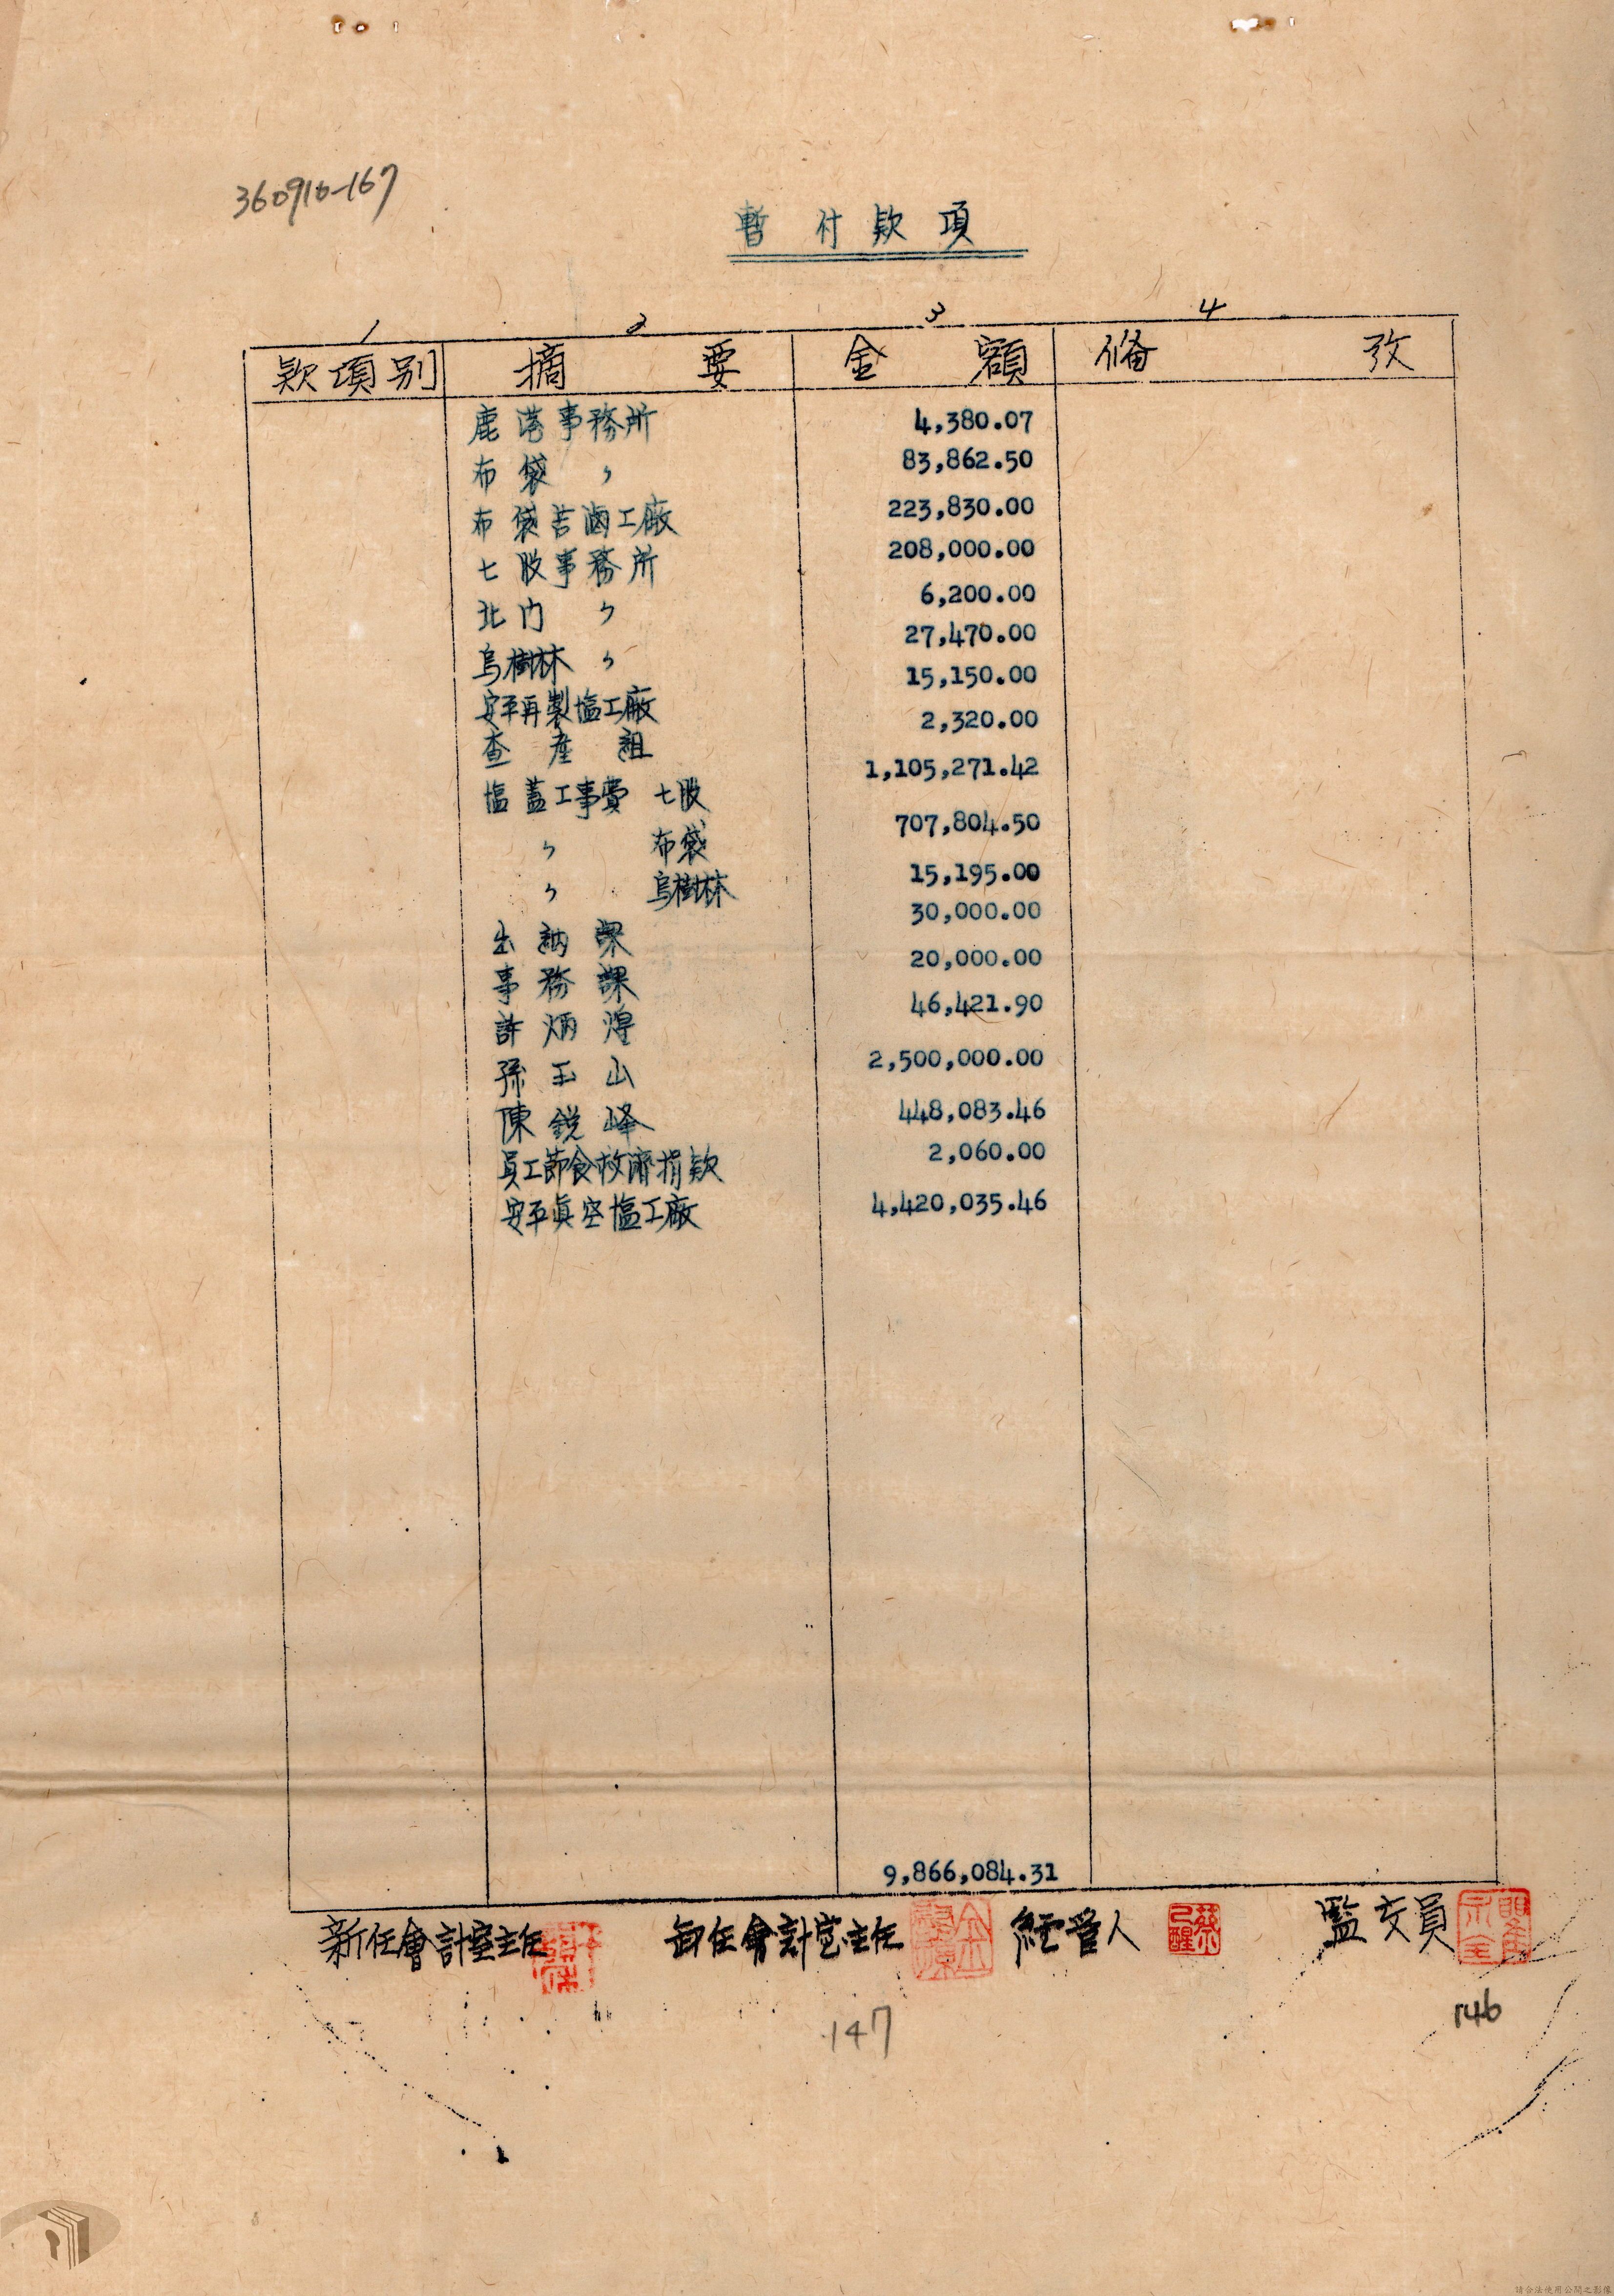 360916-167
暫付款項
1 2 3 4
款項別 摘要 金額 備攷
鹿港事務所 4,380.07
布袋 〃 83,862.50
布袋苦滷工廠 223,830.00
七股事務所 208,000.00
北門 〃 6,200.00
烏樹林 〃 27,470.00
安平再製塩工廠 15,150.00
查產組 2,320.00
塩蓋工事費 七股 1,105,271.42
〃 布袋 707,804.50
〃 烏樹林 15,195.00
出納課 30,000.00
事務課 20,000.00
許炳煌 46,421.90
孫玉山 2,500,000.00
陳銳峰 448,083.46
員工節食救濟捐款 2,060.00
安平真空塩工廠 4,420,035.46
9,866,084.31
新任會計室主任 卸任會計室主任 經管人 監交員
147
146
請合法使用公開之影像